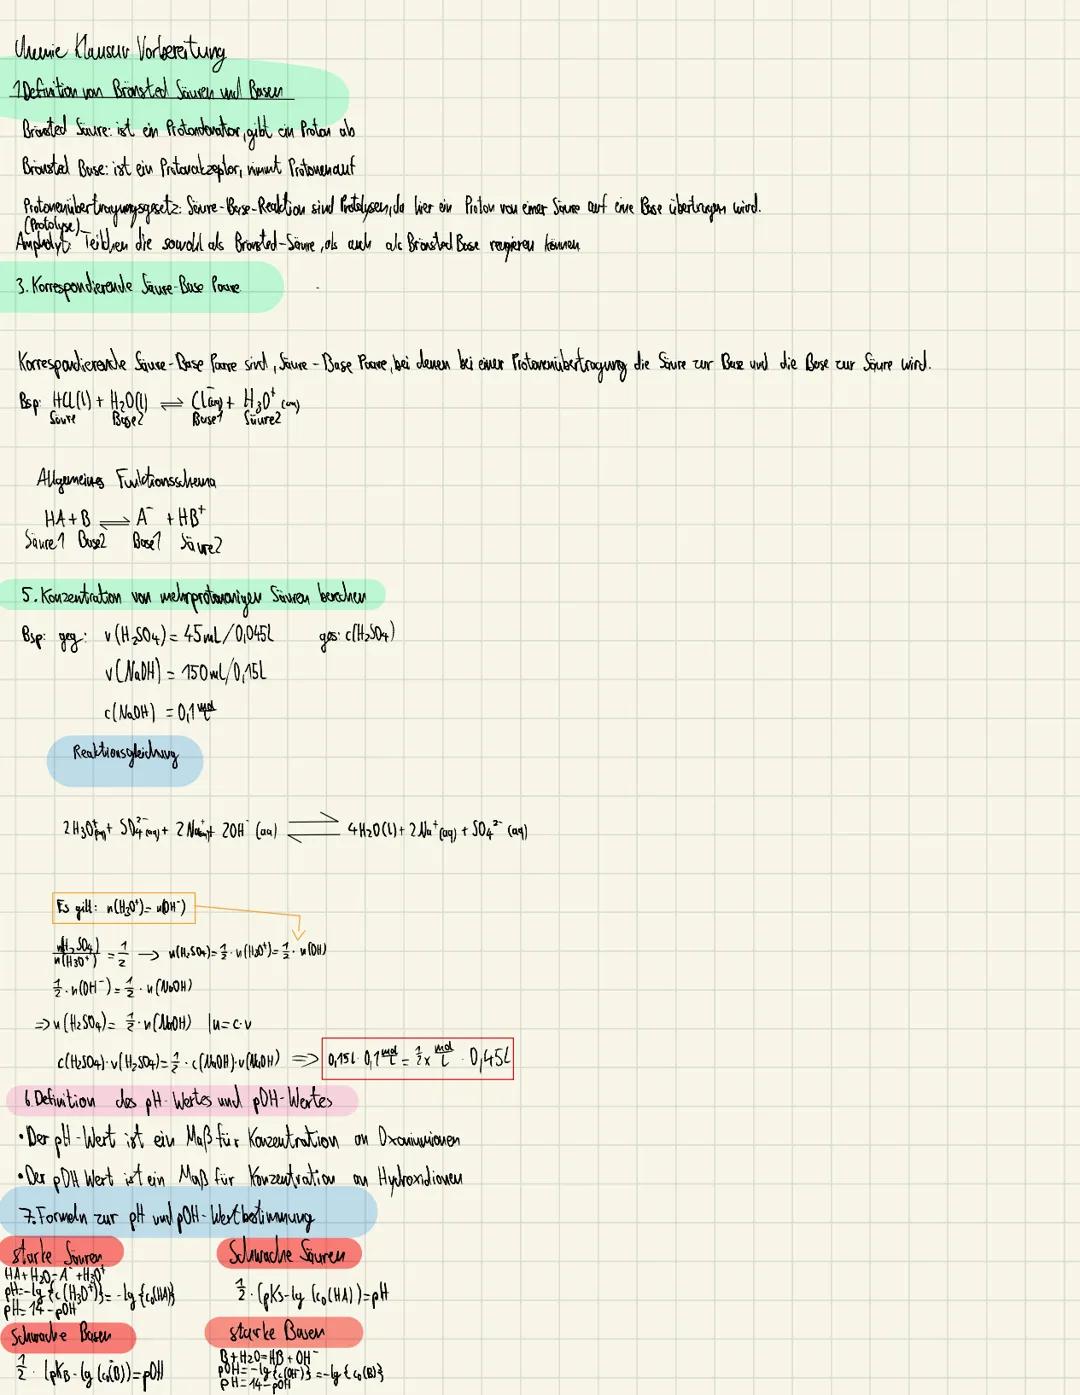 Chemie Klausur Vorbereitung
1 Definition von Brönsted Säuren und Basen
Brönsted Säure: ist ein Protondonator, gibt ein Proton ab
Brönsted Base: ist ein Protonakzeptor, nimmt Protonen auf
Protonenübertragungsgesetz: Säure-Base-Reaktion sind Protolysen, da hier ein Proton von einer Säure auf eine Base übertragen wird.
(Protolyse)
Ampholyt: Teilchen die sowohl als Brönsted-Säure, als auch als Brönsted Base reagieren können
3. Korrespondierende Säure-Base Paare
Korrespondierende Säure-Base Paare sind, Säure-Base Paare, bei denen bei einer Protonenübertragung die Säure zur Base und die Base zur Säure wird.
Bsp: HCl(l) + H₂O(l) ⇌ Cl⁻(aq) + H₃O⁺(aq)
Säure Base2 Base1 Säure2
Allgemeines Funktionsschema
HA + B ⇌ A⁻ + HB⁺
Säure1 Base2 Base1 Säure2
5. Konzentration von mehrprotonanigen Säuren berechen
Bsp: geg: v(H₂SO₄) = 45mL/0,045L ges: c(H₂SO₄)
v(NaOH) = 150mL/0,15L
c(NaOH) = 0,1 mol/L
Reaktionsgleichung
2H₃O⁺(aq) + SO₄²⁻(aq) + 2Na⁺(aq) + 2OH⁻(aq) ⇌ 4H₂O(l) + 2Na⁺(aq) + SO₄²⁻(aq)
Es gilt: n(H₃O⁺) = n(OH⁻)
n(H₂SO₄)/n(H₃O⁺) = 1/2 → n(H₂SO₄) = 1/2 · n(H₃O⁺) = 1/2 · n(OH)
1/2 · n(OH⁻) = 1/2 · n(NaOH)
⇒ n(H₂SO₄) = 1/2 · n(NaOH) |n=c·v
c(H₂SO₄)·v(H₂SO₄) = 1/2 · c(NaOH)·v(NaOH) ⇒ 0,15L · 0,1 mol/L = 1/2x mol/L · 0,45L
6. Definition des pH-Wertes und pOH-Wertes
• Der pH-Wert ist ein Maß für Konzentration an Oxoniumionen
• Der pOH Wert ist ein Maß für Konzentration an Hydroxidionen
7. Formeln zur pH und pOH-Wertbestimmung
starke Säuren Schwache Säuren
HA + H₂O = A⁻ + H₃O⁺
pH = -lg{c(H₃O⁺)} = -lg{c₀(HA)} 1/2 · (pKs - lg (c₀(HA)) = pH
pH = 14 - pOH
Schwache Basen starke Basen
1/2 · (pKB - lg (c₀(B)) = pOH
B + H₂O = HB + OH⁻
pOH = -lg{c(OH⁻)} = -lg{c₀(B)}
pH = 14 - pOH